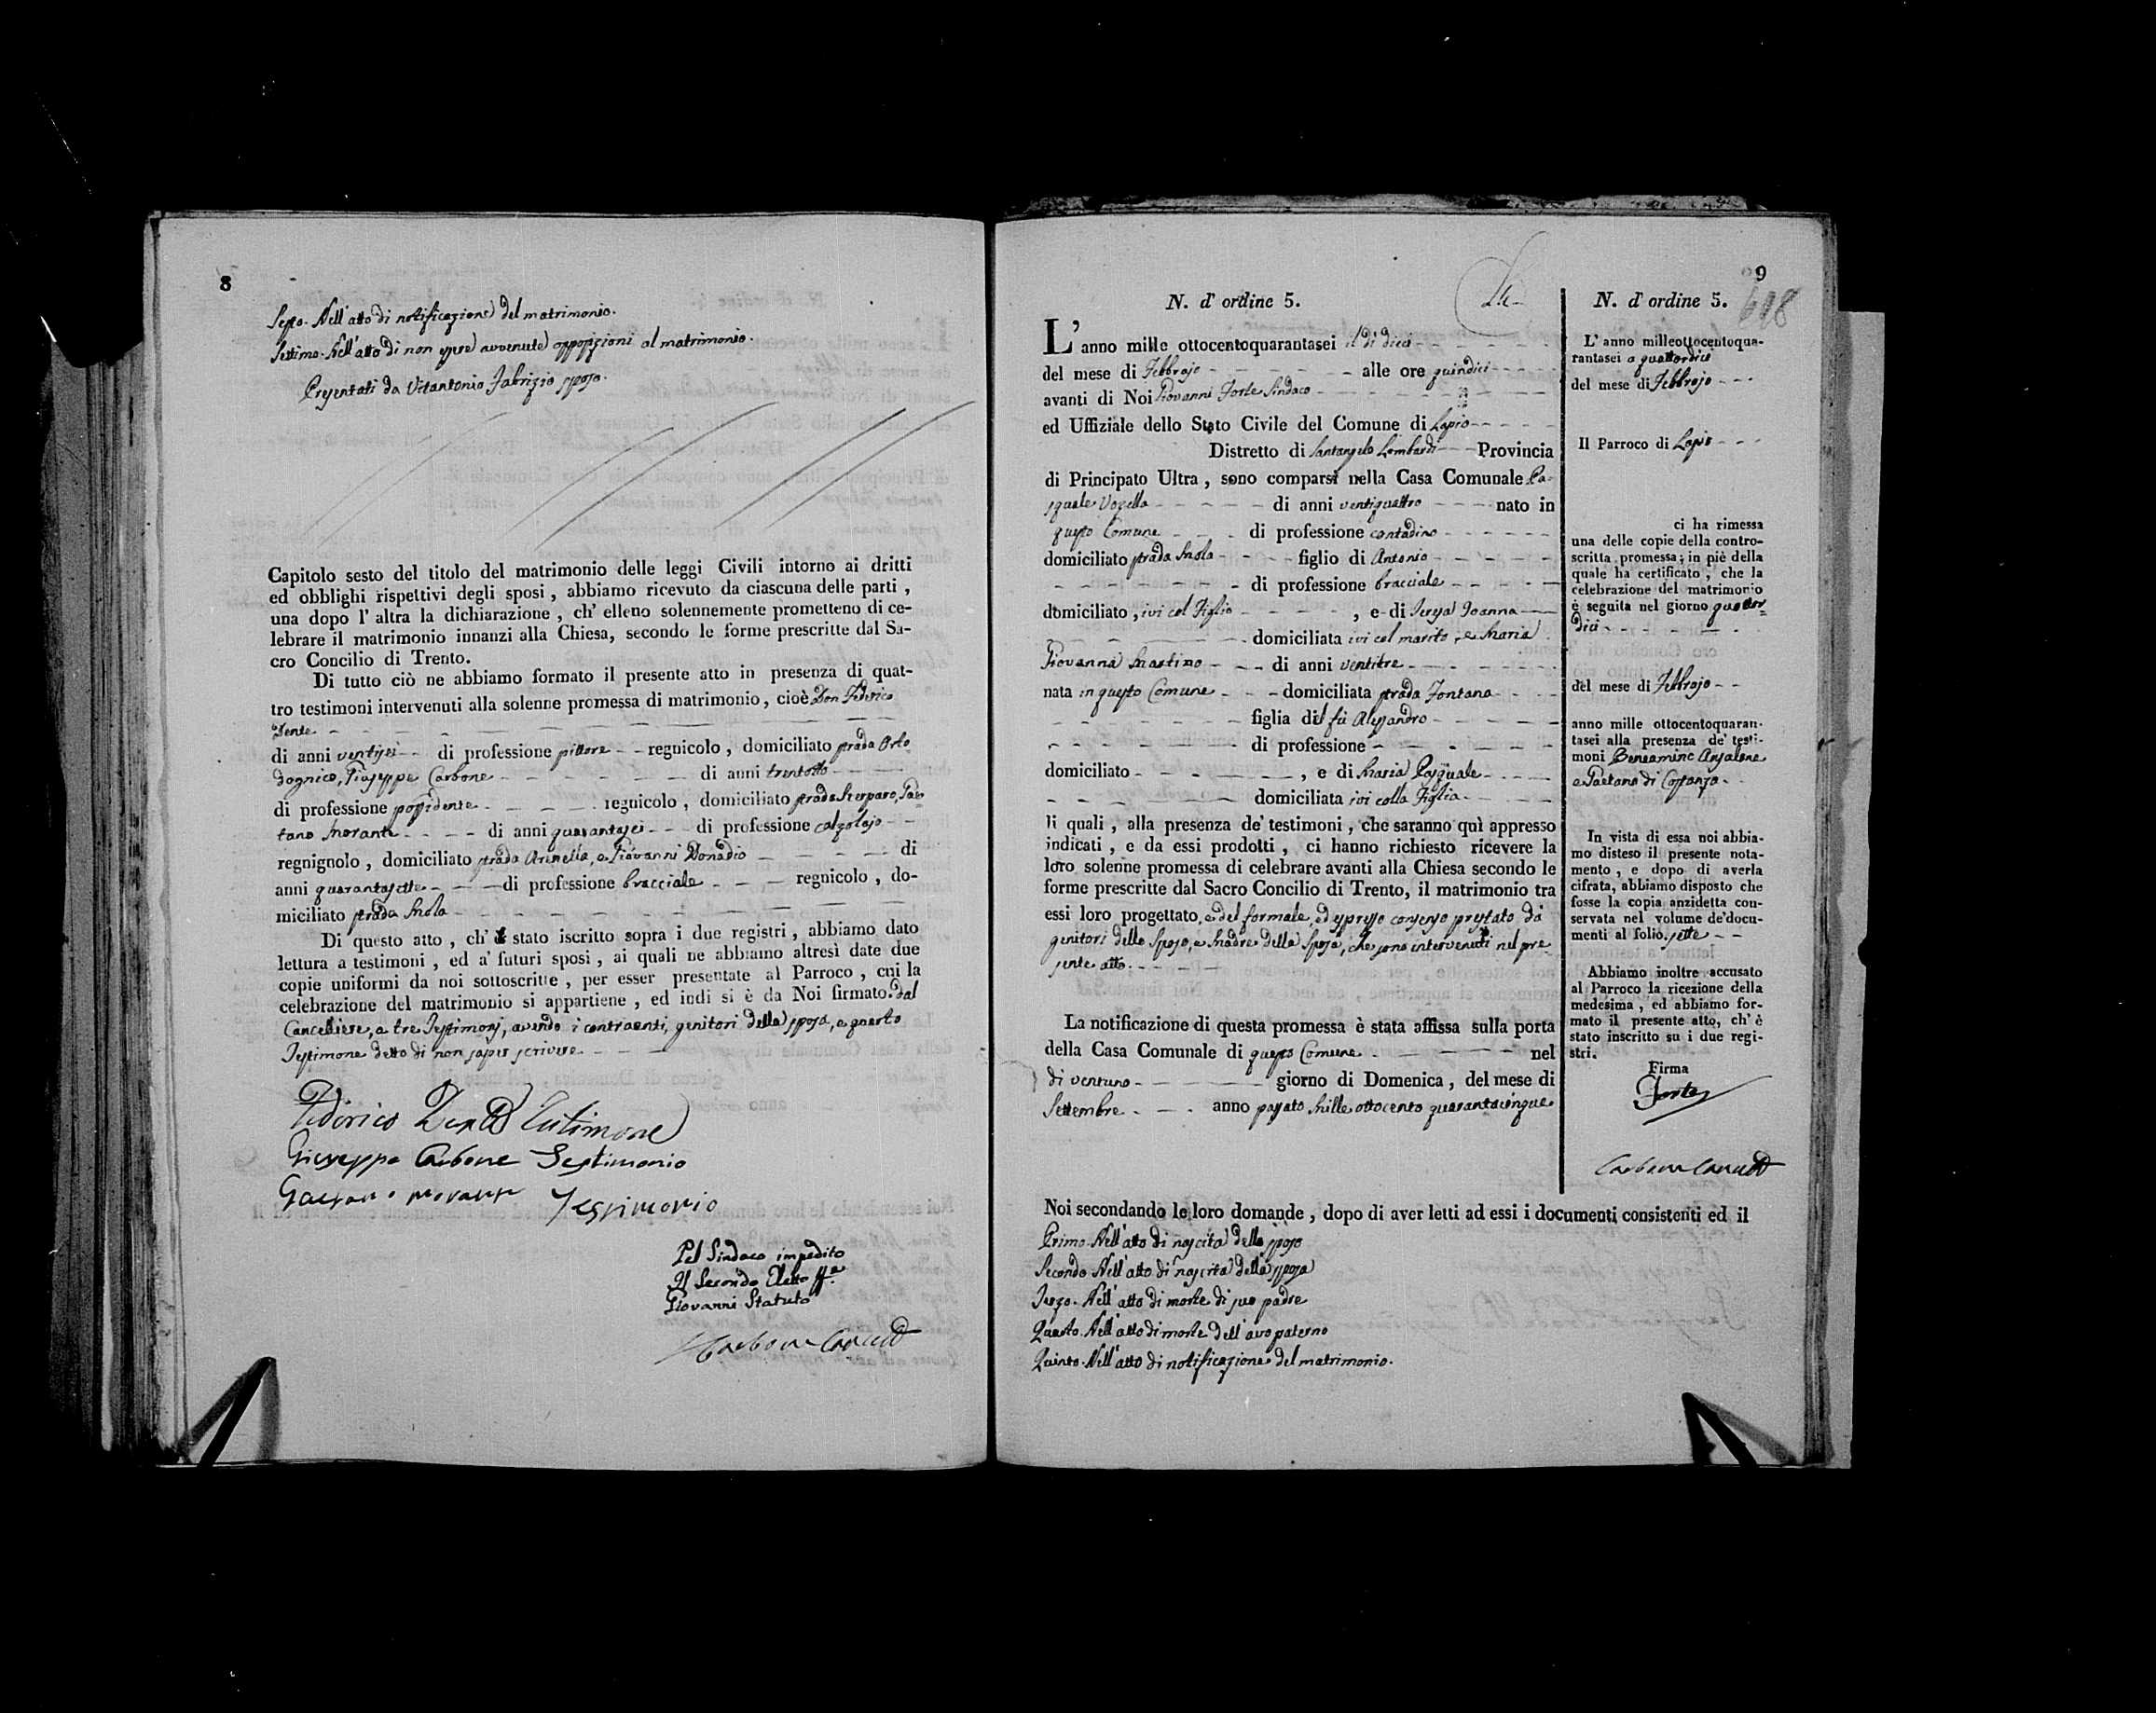 8
Sesto. Nell'atto di notificazione del matrimonio.
Settimo. Nell'atto di non essere avvenute opposizioni al matrimonio.
Presentati da Vitantonio Fabrizio sposo.
Capitolo sesto del titolo del matrimonio delle leggi Civili intorno ai dritti
ed obblighi rispettivi degli sposi, abbiamo ricevuto da ciascuna delle parti,
una dopo l'altra la dichiarazione, ch'elleno solennemente promettono di ce-
lebrare il matrimonio innanzi alla Chiesa, secondo le forme prescritte dal Sa-
cro Concilio di Trento.
Di tutto ciò ne abbiamo formato il presente atto in presenza di quat-
tro testimoni intervenuti alla solenne promessa di matrimonio, cioè Don Federico
di anni ventisei di professione pittore regnicolo, domiciliato strada Orto
Giuseppe Carbone di anni trentotto
di professione possidente regnicolo, domiciliato strada Gae
tano Morante di anni quarantasei di professione calzolajo
regnignolo, domiciliato strada e Giovanni Donadio di
anni quarantasette di professione bracciale regnicolo, do-
miciliato strada Mola
Di questo atto, ch'è stato iscritto sopra i due registri, abbiamo dato
lettura a testimoni, ed a'futuri sposi, ai quali ne abbiamo altresì date due
copie uniformi da noi sottoscritte, per esser presentate al Parroco, cui la
celebrazione del matrimonio si appartiene, ed indi si è da Noi firmato. dal
Cancelliere, e tre Testimonj, avendo i contraenti, genitori della sposa, e quarto
Testimone detto di non saper scrivere
Federico Testimone
Giuseppe Carbone Testimonio
Gaetano Morante Testimonio
Pel Sindaco impedito
Il Secondo Eletto ff.e
Giovanni Statuto
Carbone Canc
9
618
N. d'ordine 5.
L'anno mille ottocentoquarantasei il dì dieci
del mese di Febbrajo alle ore quindici
avanti di Noi Giovanni Forte Sindaco
ed Uffiziale dello Stato Civile del Comune di Lapio
Distretto di Santangelo Lombardi Provincia
di Principato Ultra, sono comparsi nella Casa Comunale Pa-
squale Vozella di anni ventiquattro nato in
questo Comune di professione contadino
domiciliato strada Mola figlio di Antonio
di professione bracciale
domiciliato, ivi col Figlio, e di Teresa Joanna
domiciliata ivi col marito, e Maria
Giovanna Mastino di anni ventitre
nata in questo Comune domiciliata strada Fontana
figlia del fù Alessandro
di professione
domiciliato, e di Maria Pasquale
domiciliata ivi colla Figlia
li quali, alla presenza de'testimoni, che saranno quì appresso
indicati, e da essi prodotti, ci hanno richiesto ricevere la
loro solenne promessa di celebrare avanti alla Chiesa secondo le
forme prescritte dal Sacro Concilio di Trento, il matrimonio tra
essi loro progettato, e del formale, ed espresso consenso prestato da
genitori dello Sposo, e Madre della Sposa, che sono intervenuti nel pre
sente atto.
La notificazione di questa promessa è stata affissa sulla porta
della Casa Comunale di questo Comune nel
dì ventuno giorno di Domenica, del mese di
Settembre anno passato Mille ottocento quarantacinque
Noi secondando le loro domande, dopo di aver letti ad essi i documenti consistenti ed il
Primo. Nell'atto di nascita dello sposo
Secondo. Nell'atto di nascita della sposa
Terzo. Nell'atto di morte di suo padre
Quarto. Nell'atto di morte dell'avo paterno
Quinto. Nell'atto di notificazione del matrimonio.
N. d'ordine 5.
L'anno milleottocentoqua-
rantasei a quattordici
del mese di Febbrajo
Il Parroco di Lapio
ci ha rimessa
una delle copie della contro-
scritta promessa; in piè della
quale ha certificato, che la
celebrazione del matrimonio
è seguita nel giorno quattor-
dici
del mese di Febbrajo
anno mille ottocentoquaran-
tasei alla presenza de'testi-
moni Beneamino Anzalone
e Gaetano di Costanzo
In vista di essa noi abbia-
mo disteso il presente nota-
mento, e dopo di averla
cifrata, abbiamo disposto che
fosse la copia anzidetta con-
servata nel volume de'docu-
menti al folio. sette
Abbiamo inoltre accusato
al Parroco la ricezione della
medesima, ed abbiamo for-
mato il presente atto, ch'è
stato inscritto su i due regi-
stri.
Firma
Forte
Carbone Canc